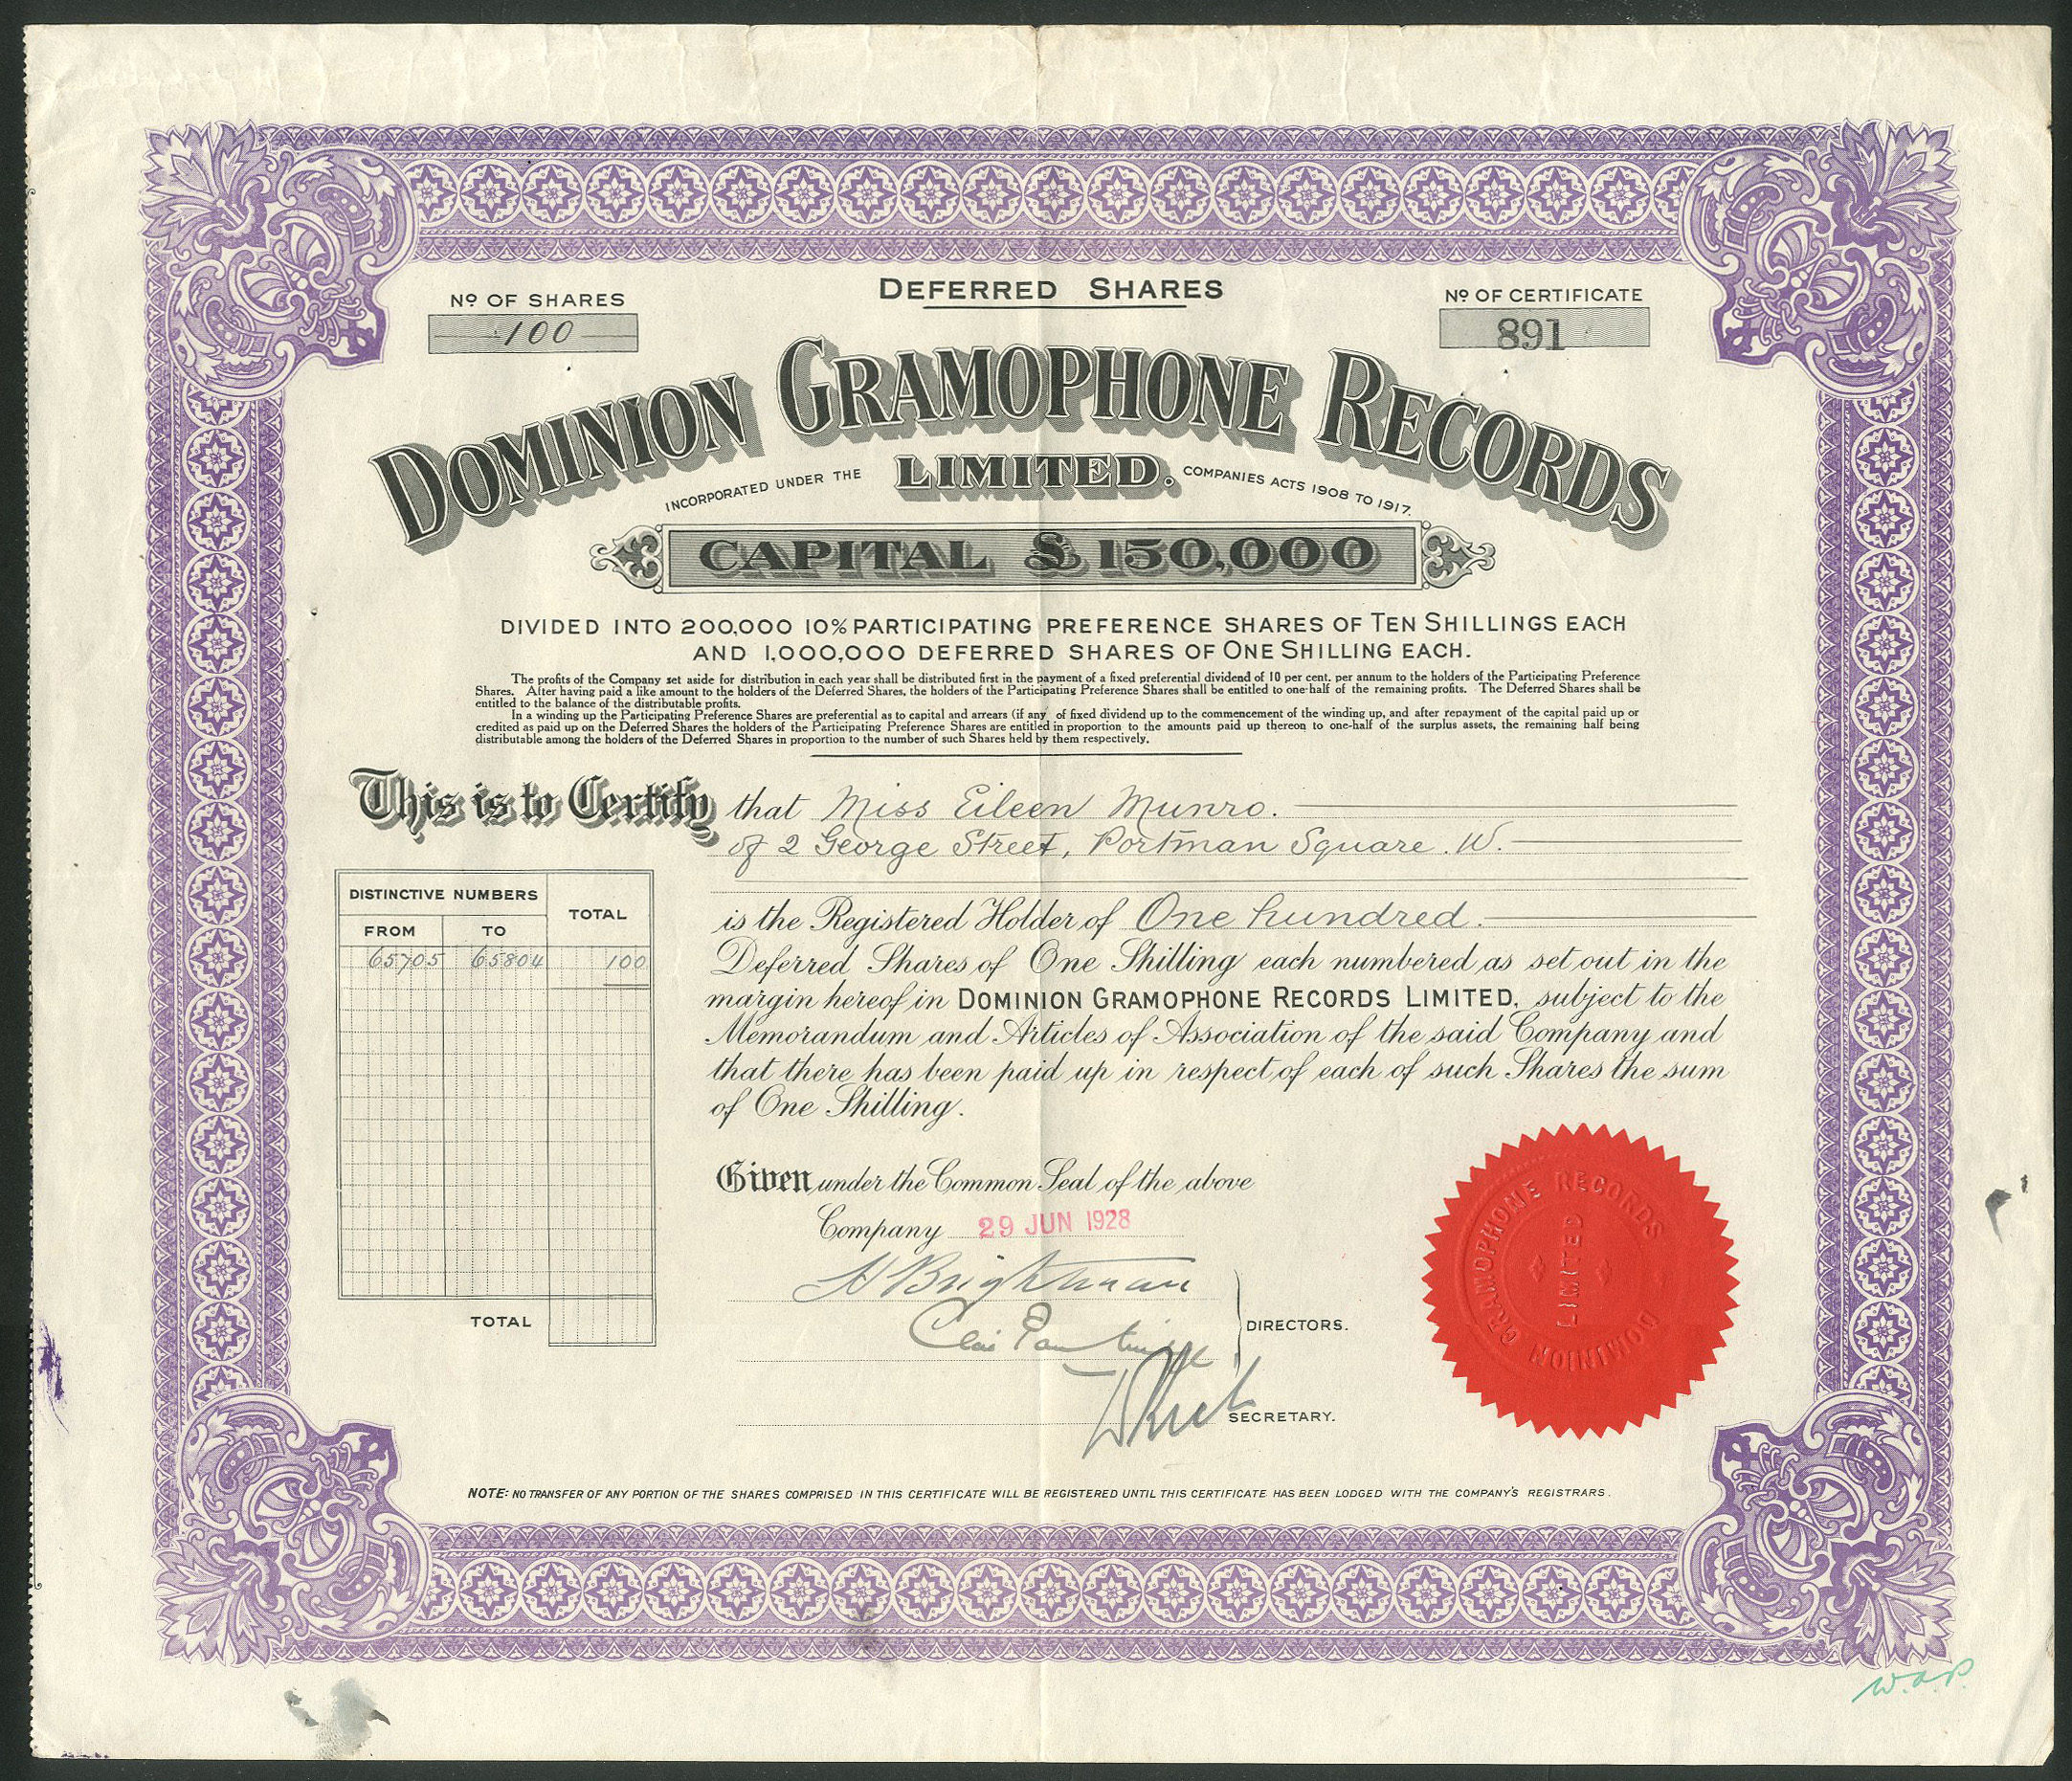 DEFERRED SHARES
Nº OF SHARES
100
Nº OF CERTIFICATE
891
DOMINION GRAMOPHONE RECORDS
LIMITED.
INCORPORATED UNDER THE COMPANIES ACTS 1908 TO 1917.
CAPITAL £150,000
DIVIDED INTO 200,000 10% PARTICIPATING PREFERENCE SHARES OF TEN SHILLINGS EACH
AND 1,000,000 DEFERRED SHARES OF ONE SHILLING EACH.
The profits of the Company set aside for distribution in each year shall be distributed first in the payment of a fixed preferential dividend of 10 per cent. per annum to the holders of the Participating Preference
Shares. After having paid a like amount to the holders of the Deferred Shares, the holders of the Participating Preference Shares shall be entitled to one-half of the remaining profits. The Deferred Shares shall be
entitled to the balance of the distributable profits.
In a winding up the Participating Preference Shares are preferential as to capital and arrears (if any of fixed dividend up to the commencement of the winding up, and after repayment of the capital paid up or
credited as paid up on the Deferred Shares the holders of the Participating Preference Shares are entitled in proportion to the amounts paid up thereon to one-half of the surplus assets, the remaining half being
distributable among the holders of the Deferred Shares in proportion to the number of such Shares held by them respectively.
This is to Certify that Miss Eileen Munro.
of 2 George Street, Portman Square. W.
is the Registered Holder of One hundred.
Deferred Shares of One Shilling each numbered as set out in the
margin hereof in DOMINION GRAMOPHONE RECORDS LIMITED, subject to the
Memorandum and Articles of Association of the said Company and
that there has been paid up in respect of each of such Shares the sum
of One Shilling.
DISTINCTIVE NUMBERS
TOTAL
FROM TO
65705 65804 100
TOTAL
Given under the Common Seal of the above
Company 29 JUN 1928
H Brightman
DIRECTORS.
SECRETARY.
DOMINION GRAMOPHONE RECORDS
LIMITED
NOTE: NO TRANSFER OF ANY PORTION OF THE SHARES COMPRISED IN THIS CERTIFICATE WILL BE REGISTERED UNTIL THIS CERTIFICATE HAS BEEN LODGED WITH THE COMPANY'S REGISTRARS.
W.A.P.